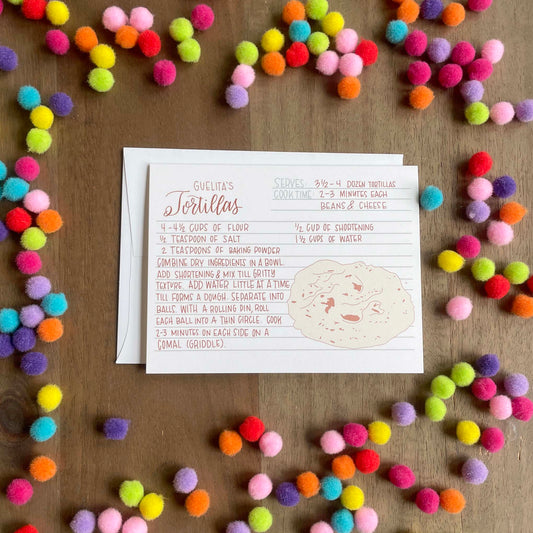 GUELITA'S
Tortillas
SERVES: 3½-4 DOZEN TORTILLAS
COOKTIME: 2-3 MINUTES EACH
BEANS & CHEESE
4-4½ CUPS OF FLOUR
½ CUP OF SHORTENING
½ TEASPOON OF SALT
1½ CUPS OF WATER
2 TEASPOONS OF BAKING POWDER
COMBINE DRY INGREDIENTS IN A BOWL.
ADD SHORTENING & MIX TILL GRITTY
TEXTURE. ADD WATER LITTLE AT A TIME
TILL FORMS A DOUGH. SEPARATE INTO
BALLS. WITH A ROLLING PIN, ROLL
EACH BALL INTO A THIN CIRCLE. COOK
2-3 MINUTES ON EACH SIDE ON A
COMAL (GRIDDLE).